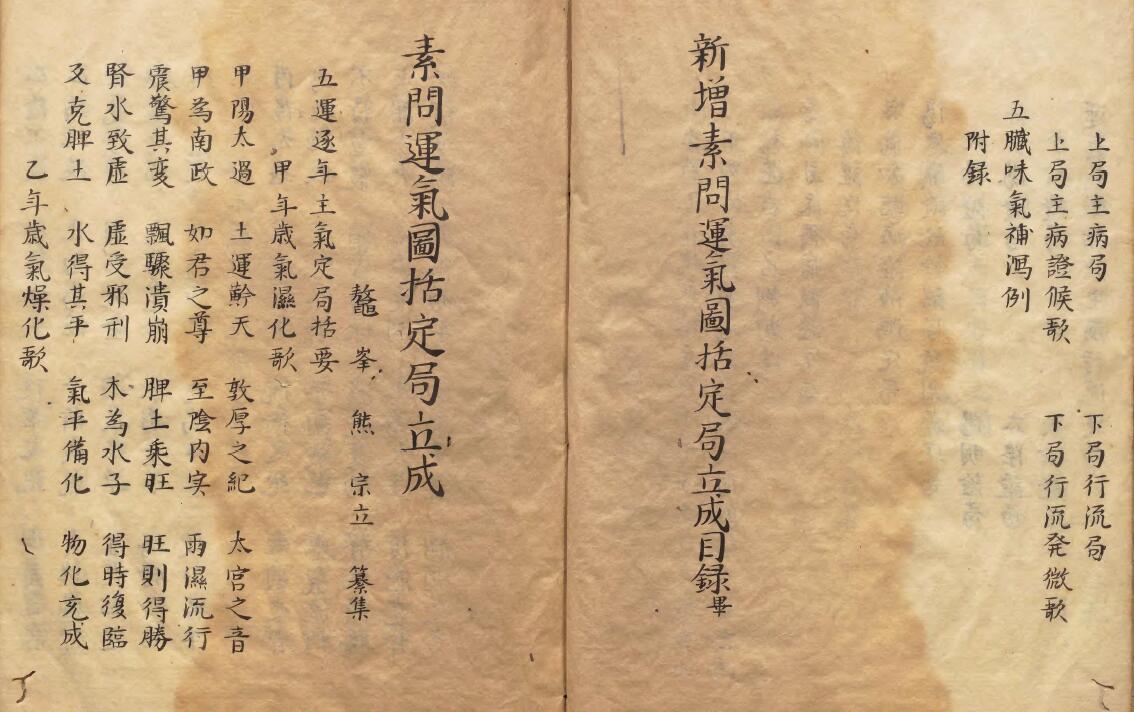 上局主病局　下局行流局
上局主病證候歌　下局行流発微歌
五臟味氣補瀉例
附録
新增素問運氣圖括定局立成目録畢
素問運氣圖括定局立成
鼇峯熊宗立纂集
五運逐年主氣定局括要
甲年歲氣濕化歌
甲陽太過　土運黅天　敦厚之紀　太宮之音
甲為南政　如君之尊　至陰內実　雨濕流行
震驚其変　飄驟潰崩　脾土乘旺　旺則得勝
腎水致虛　虛受邪刑　木為水子　得時復臨
反克脾土　水得其平　氣平備化　物化充成
乙年歲氣燥化歌